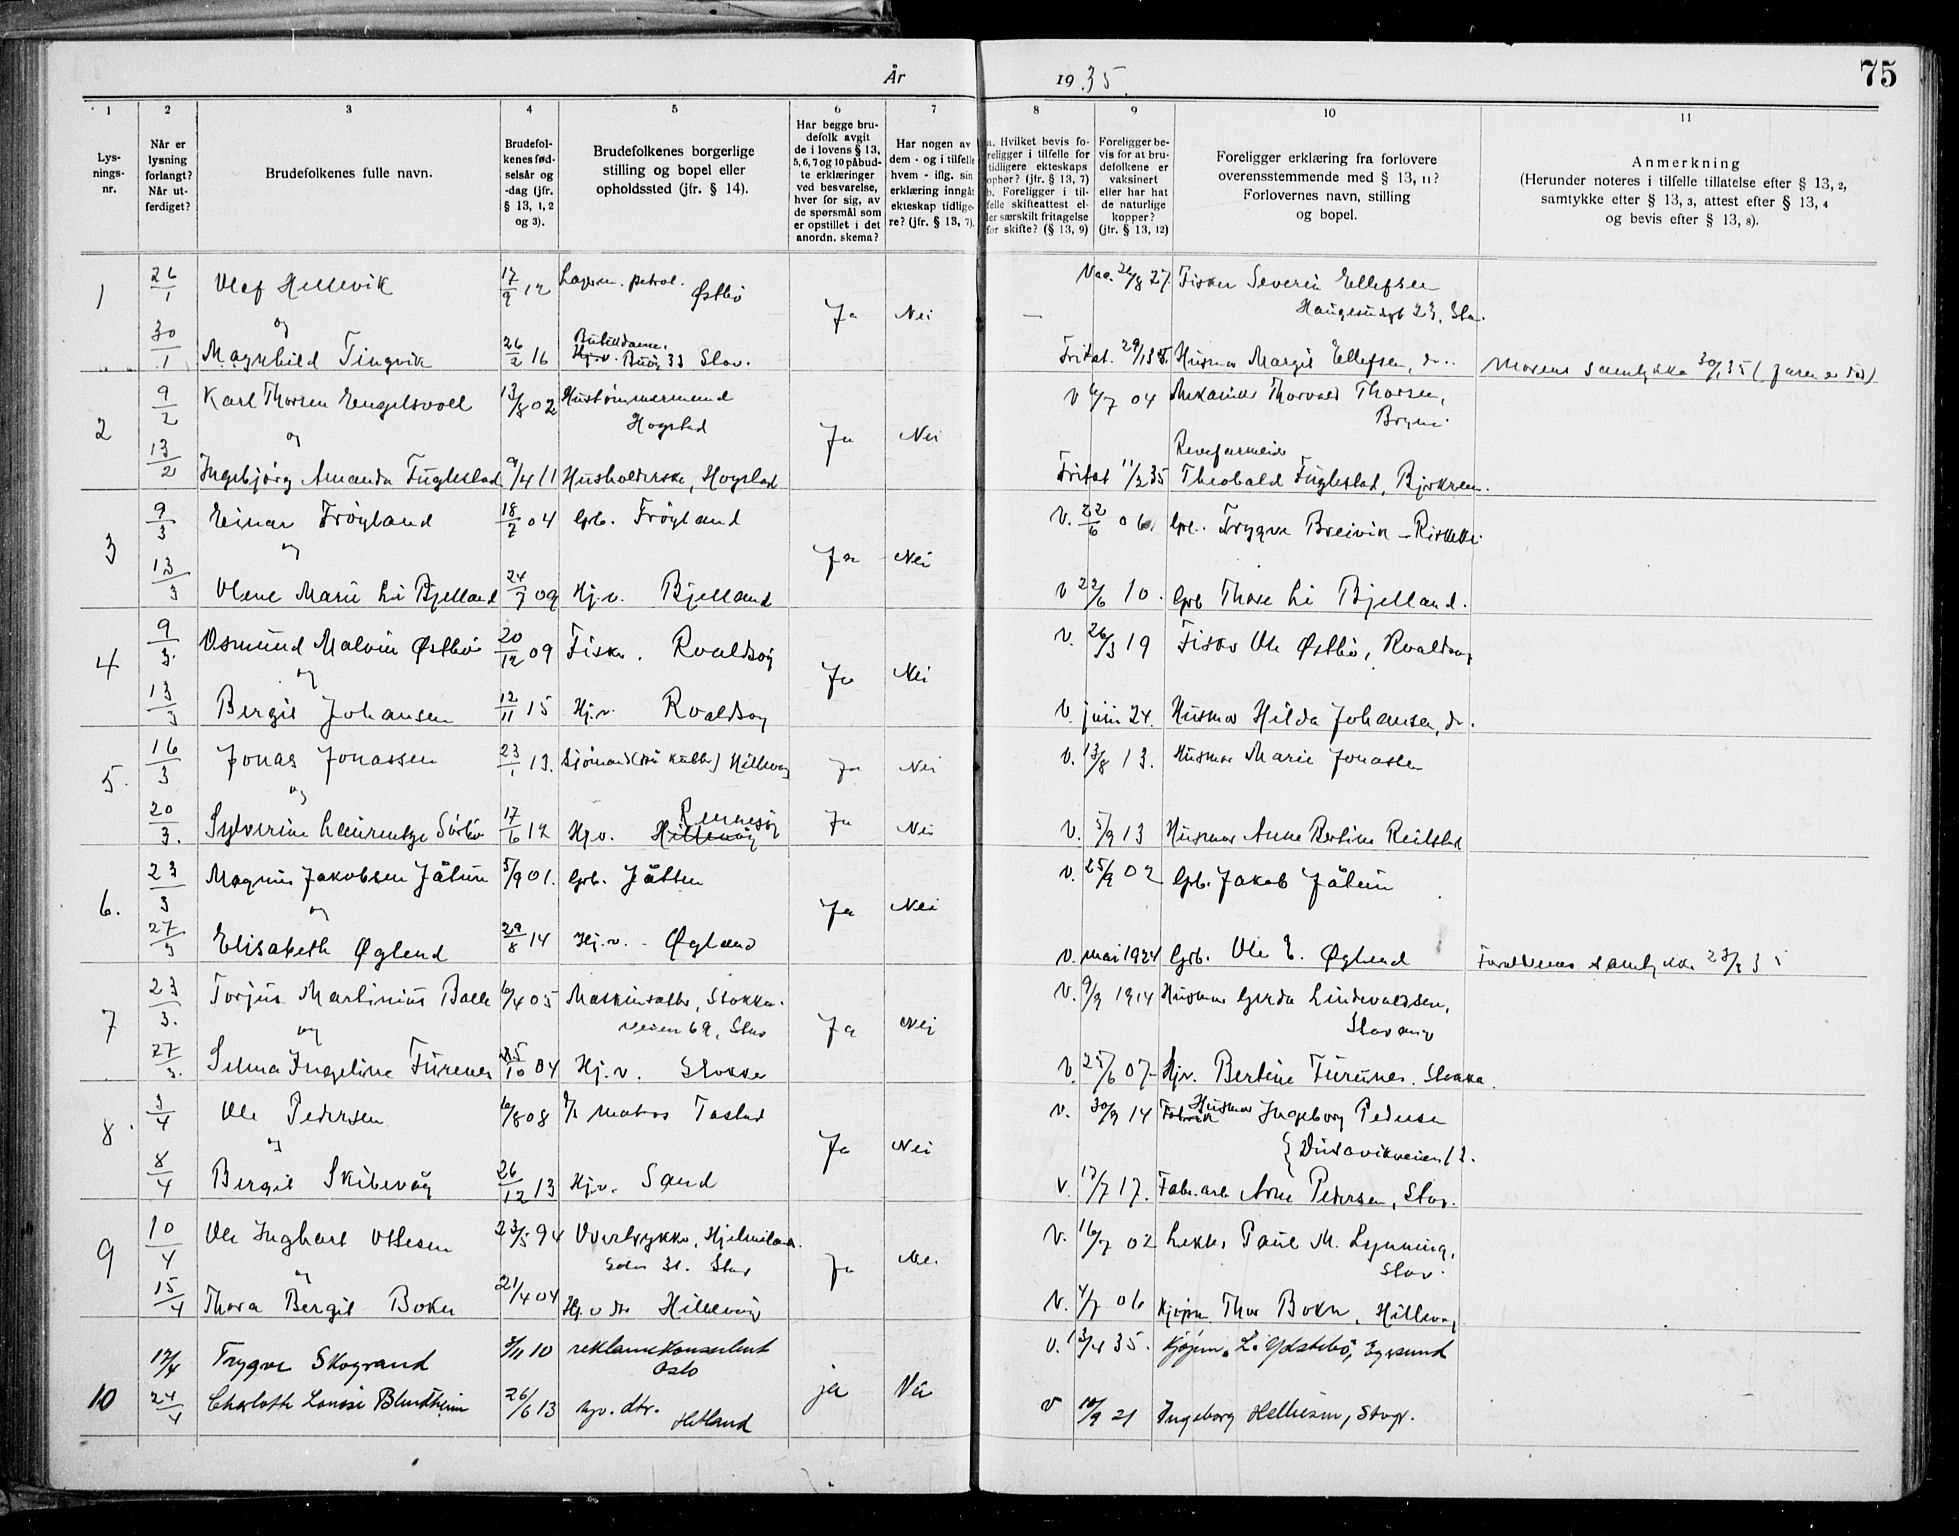 År 1935.
75
1
2
3
4
5
6
7
8
9
10
11
Lys-
nings-
nr.
Når er
lysning
forlangt?
Når ut-
ferdiget?
Brudefolkenes fulle navn.
Brudefol-
kenes fød-
selsår og
-dag (jfr.
§ 13, 1, 2
og 3).
Brudefolkenes borgerlige
stilling og bopel eller
opholdssted (jfr. § 14).
Har begge bru-
defolk avgit
de i lovens § 13,
5, 6, 7 og 10 påbud-
te erklæringer
ved besvarelse,
hver for sig, av
de spørsmål som
er opstillet i det
anordn. skema?
Har nogen av
dem - og i tilfelle
hvem - iflg. sin
erklæring inngåt
ekteskap tidlige-
re? (jfr. § 13, 7).
a. Hvilket bevis fo-
religger i tilfelle for
tidligere ekteskaps
ophør? (jfr. § 13, 7)
b. Foreligger i til-
felle skifteattest el-
ler særskilt fritagelse
for skifte? (§ 13, 9)
Foreligger be-
vis for at bru-
defolkene er
vaksinert
eller har hat
de naturlige
kopper?
(jfr. § 13, 12)
Foreligger erklæring fra forlovere
overensstemmende med § 13, 11?
Forlovernes navn, stilling
og bopel.
Anmerkning
(Herunder noteres i tilfelle tillatelse efter § 13, 2,
samtykke efter § 13, 3, attest efter § 13, 4
og bevis efter § 13, 8).
1 26/1 Olaf Hillevik 17/9 12 Lagerm. petrol. Østbø Ja Nei — Vac. 26/8 27. Fisker Severin Ellefsen
Haugesundgt 23, Stav.
og
30/1 Magnhild Tingvik 26/2 16 Butikkdame, Buøy 33 Stav. Fritat 29/1 35. Husmor Margit Ellefsen, do. Morens samtykke 30/1 35 (faren er død)
2 9/2 Karl Thorsen Engelsvoll 13/8 02 Hustømmermand
Hogstad Ja Nei V 6/7 04 Mekaniker Thorvald Thorsen,
Bryne.
og
13/2 Ingebjørg Amanda Fuglestad 9/4 11 Husholderske, Hogstad Fritat 11/2 35 Revefarmeier
Theobald Fuglestad, Bjerkreim.
3 9/3 Einar Frøyland 18/7 04 Grb. Frøyland Ja Nei V. 22/6 06. Grb. Trygve Breivik - Riskekv.
og
13/3 Olene Marie Li Bjelland 24/7 09 Hj.v. Bjelland V 22/6 10. Grb Thore Li Bjelland.
4 9/3. Osmund Malvin Østbø 20/12 09 Fisker. Roaldsøy Ja Nei V. 26/3 19 Fisker Ole Østbø, Roaldsøy
og
13/3 Bergit Johansen 12/11 15 Hj.v. Roaldsøy V. juni 24. Husmor Hilda Johansen, do.
5. 16/3 Jonas Jonassen 23/1 13. Sjømand Hillevåg Ja Nei V. 13/8 13. Husmor Marie Jonassen
og
20/3. Sylverine Laurentze Sørbø 17/6 12 Hj.v. Rennesøy
Hillevåg Ja Nei V. 5/9 13 Husmor Anne Bertine Reilstad
6. 23/3 Magnus Jakobsen Jåtun 5/9 01. Grb. Jåtten Ja Nei V. 25/9 02 Grb. Jakob Jåtun
og
27/3 Elisabeth Øglend 29/8 14 Hj.v. - Øgland V. mai 1924 Grb. Ole E. Øglend Foreldrenes samtykke 23/3 35
7 23/3. Torjus Martinius Balle 6/4 05 Maskinsetter, Stokka-
veien 69, Stav Ja Nei V. 9/9 1914 Husmor Gerda Lindevaldsen,
Stavang
og
27/3. Selma Ingeline Furenes 25/10 04 Hj.v. Stokka V. 25/6 07- Hjv. Bertine Furunes. Stokka.
8. 3/4 Ole Pedersen 6/8 08 matros Tastad Ja Nei V. 30/9 14 Husmor Ingeborg Pedersen
Dusavikveien 12.
og
8/4 Bergit Skibevåg 26/12 13 Hj.v. Sand V. 17/7 17. Fabr.arb. Arne Pedersen, Stav.
9 10/4 Ole Inghart Ottesen 23/5 94 Overtrykker, Hjelmelands-
gaten 31. Stav Ja Nei V. 16/7 02 Lekter Paul M. Lynning,
Stav.
og
15/4 Thora Bergit Bokn 21/4 04 Hj.v dtr Hillevåg V. 4/7 06 Kjøpm Thor Bokn, Hillevåg
10 17/4 Trygve Skogrand 3/11 10 reklamekonsulent
Oslo ja Nei V. 13/4 35. Kjøpm. L. Ydstebø, Egersund
24/4 Charlotte Louise Blindheim 26/6 13 hjv. dtr.
Hetland V 10/9 21 Ingeborg Helliesen, Stvgr.